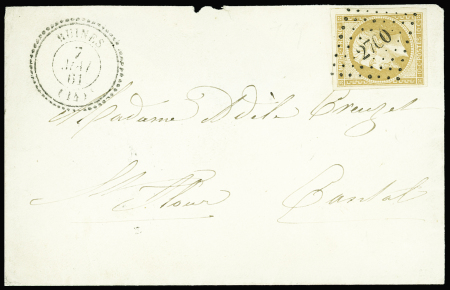 RUINES
7
MAI
61
(14)
2700
Madame Adèle Creuzet
St Flour
Cantal